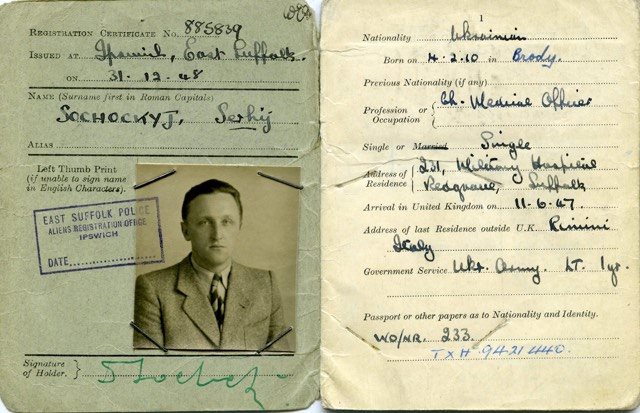 REGISTRATION CERTIFICATE No. 885839
ISSUED AT Ipswich, East Suffolk.
ON 31-12-48
NAME (Surname first in Roman Capitals)
SOCHOCKYJ, Serhij
ALIAS
Left Thumb Print
(if unable to sign name
in English Characters).
EAST SUFFOLK POLICE
ALIENS REGISTRATION OFFICE
IPSWICH
DATE
Signature
of Holder.
1
Nationality Ukrainian
Born on 4-2-10 in Brody.
Previous Nationality (if any)
Profession or Occupation } Ch. Medical Officer
Single or Married Single
Address of Residence } 231, Military Hospital
Redgrave, Suffolk
Arrival in United Kingdom on 11-6-47
Address of last Residence outside U.K. Rimini
Italy
Government Service Ukr. Army. LT. 1 yr.
Passport or other papers as to Nationality and Identity.
WO/NR. 233.
TXH 9421440.